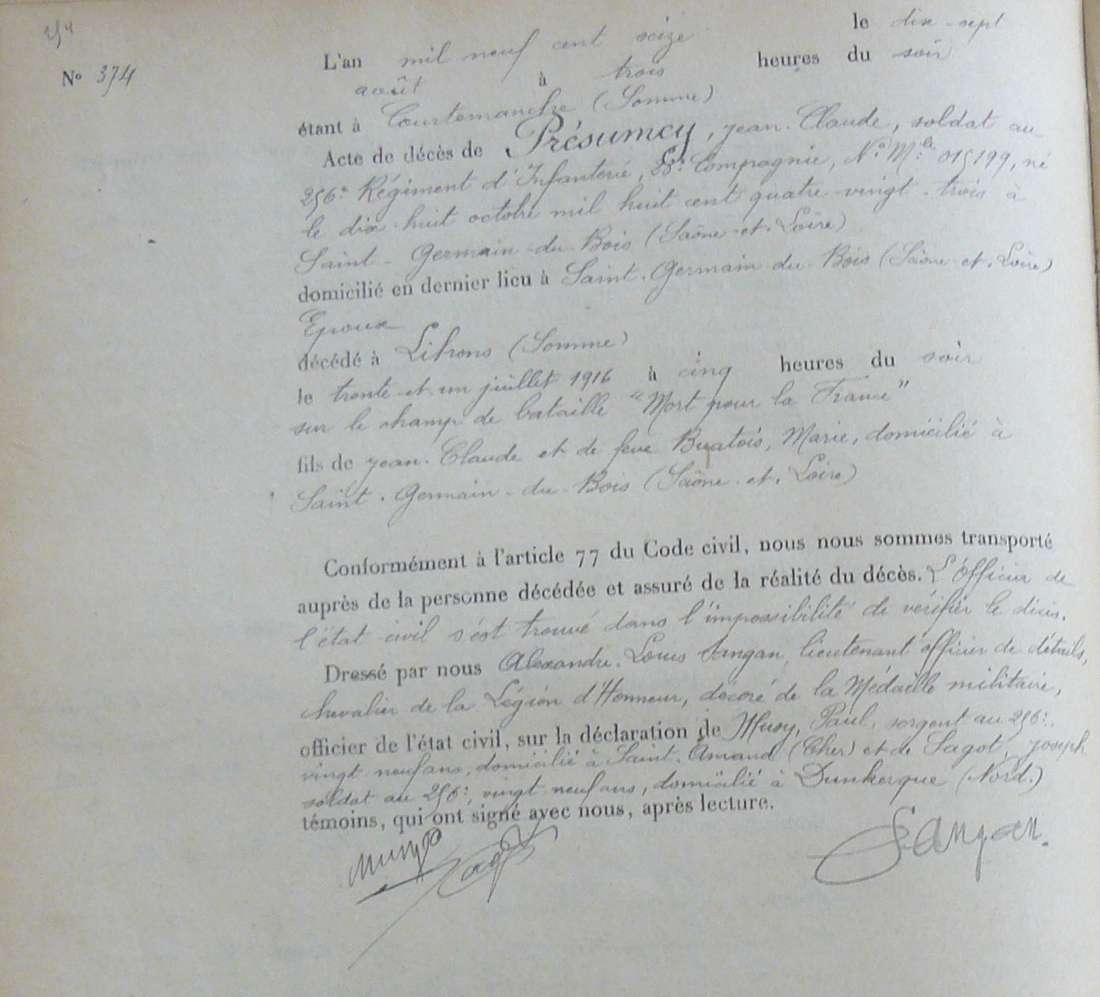 L'an mil neuf cent seize le dix-sept
N° 374
août à trois heures du soir
étant à Courtemanche (Somme)
Acte de décès de Présumey, Jean-Claude, soldat au
256e Régiment d'Infanterie, Compagnie, N° Mle 015199, né
le dix-huit octobre mil huit cent quatre-vingt-trois à
Saint-Germain-du-Bois (Saône-et-Loire)
domicilié en dernier lieu à Saint-Germain-du-Bois (Saône-et-Loire)
Epoux
décédé à Lihons (Somme)
le trente et un juillet 1916 à cinq heures du soir
sur le champ de bataille "Mort pour la France"
fils de Jean-Claude et de feue Buatois, Marie, domicilié à
Saint-Germain-du-Bois (Saône-et-Loire)
Conformément à l'article 77 du Code civil, nous nous sommes transporté
auprès de la personne décédée et assuré de la réalité du décès. L'officier de
l'état civil s'est trouvé dans l'impossibilité de vérifier le décès.
Dressé par nous Alexandre-Louis Sangan, lieutenant officier de détails,
chevalier de la Légion d'Honneur, décoré de la Médaille militaire,
officier de l'état civil, sur la déclaration de Musy, Paul, sergent au 256e,
vingt neuf ans, domicilié à Saint-Amand (Cher) et de Sagot, Joseph
soldat au 256e, vingt neuf ans, domicilié à Dunkerque (Nord.)
témoins, qui ont signé avec nous, après lecture.
Musy Sangan.